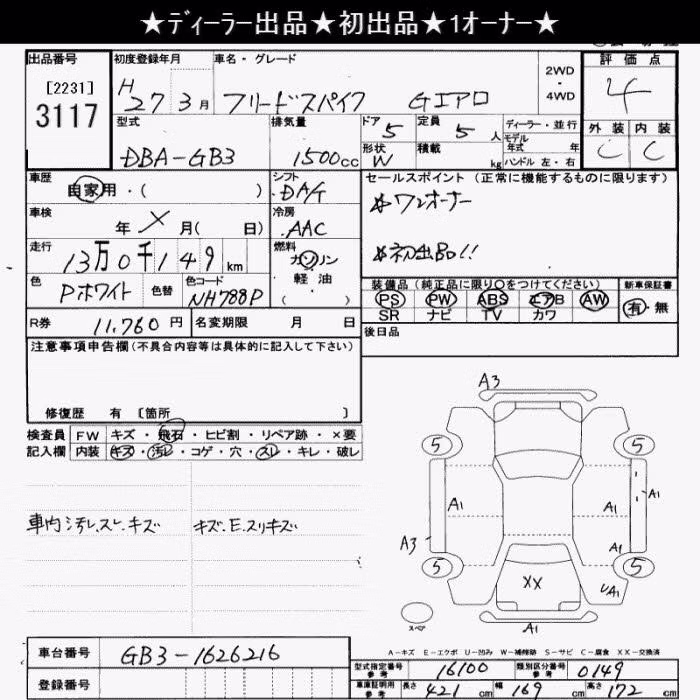 ★ディーラー出品★初出品★1オーナー★
出品番号 初度登録年月 車名・グレード 2WD・4WD 評価点
[2231]
3117 H27 3月 フリードスパイク Gエアロ 4
型式 排気量 ドア 定員 ディーラー・並行 外装 内装
DBA-GB3 1500cc 5 5人 モデル年式 年 C C
形状 W 積載 kg ハンドル 左・右
車歴 自家用・( ) シフト DA/F セールスポイント (正常に機能するものに限ります)
車検 年 X 月( 日) 冷房 AAC ☆ワンオーナー
走行 13万0千149km 燃料 ガソリン・軽油 ( ) ☆初出品!!
色 Pホワイト 色替 色コード NH788P
装備品 (純正品に限り○をつけてください) 新車保証書
PS PW ABS エアB AW 有・無
SR ナビ TV カワ
R券 11,760円 名変期限 月 日 後日品
注意事項申告欄 (不具合内容等は具体的に記入して下さい)
修復歴 有 [箇所 ]
検査員記入欄 FW キズ・飛石・ヒビ割・リペア跡・×要
内装 キズ・汚レ・コゲ・穴・スレ・キレ・破レ
車内汚レ.スレ.キズ キズ.E.スリキズ
A3
5 5
A1 A1
A3 A1
5 5
XX UA1
スペア
A1
A-キズ E-エクボ U-凹み W-補修跡 S-サビ C-腐食 XX-交換済
車台番号 GB3-1626216
型式指定番号 参考 16100 類別区分番号 参考 0149
登録番号
車庫証明用 参考 長さ 421cm 幅 169cm 高さ 172cm